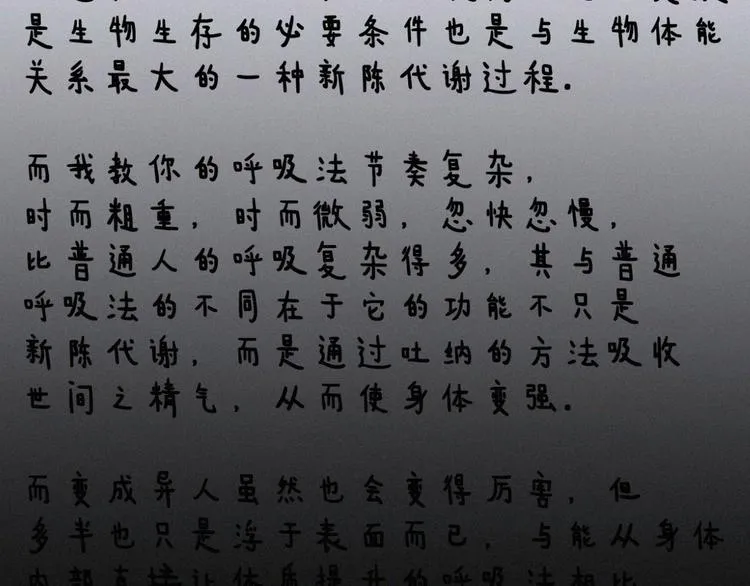 是生物生存的必要条件也是与生物体能
关系最大的一种新陈代谢过程.
而我教你的呼吸法节奏复杂,
时而粗重, 时而微弱, 忽快忽慢,
比普通人的呼吸复杂得多, 其与普通
呼吸法的不同在于它的功能不只是
新陈代谢, 而是通过吐纳的方法吸收
世间之精气, 从而使身体变强。
而变成异人虽然也会变得厉害, 但
多半也只是浮于表面而已, 与能从身体
内部直接让体质提升的呼吸法相比